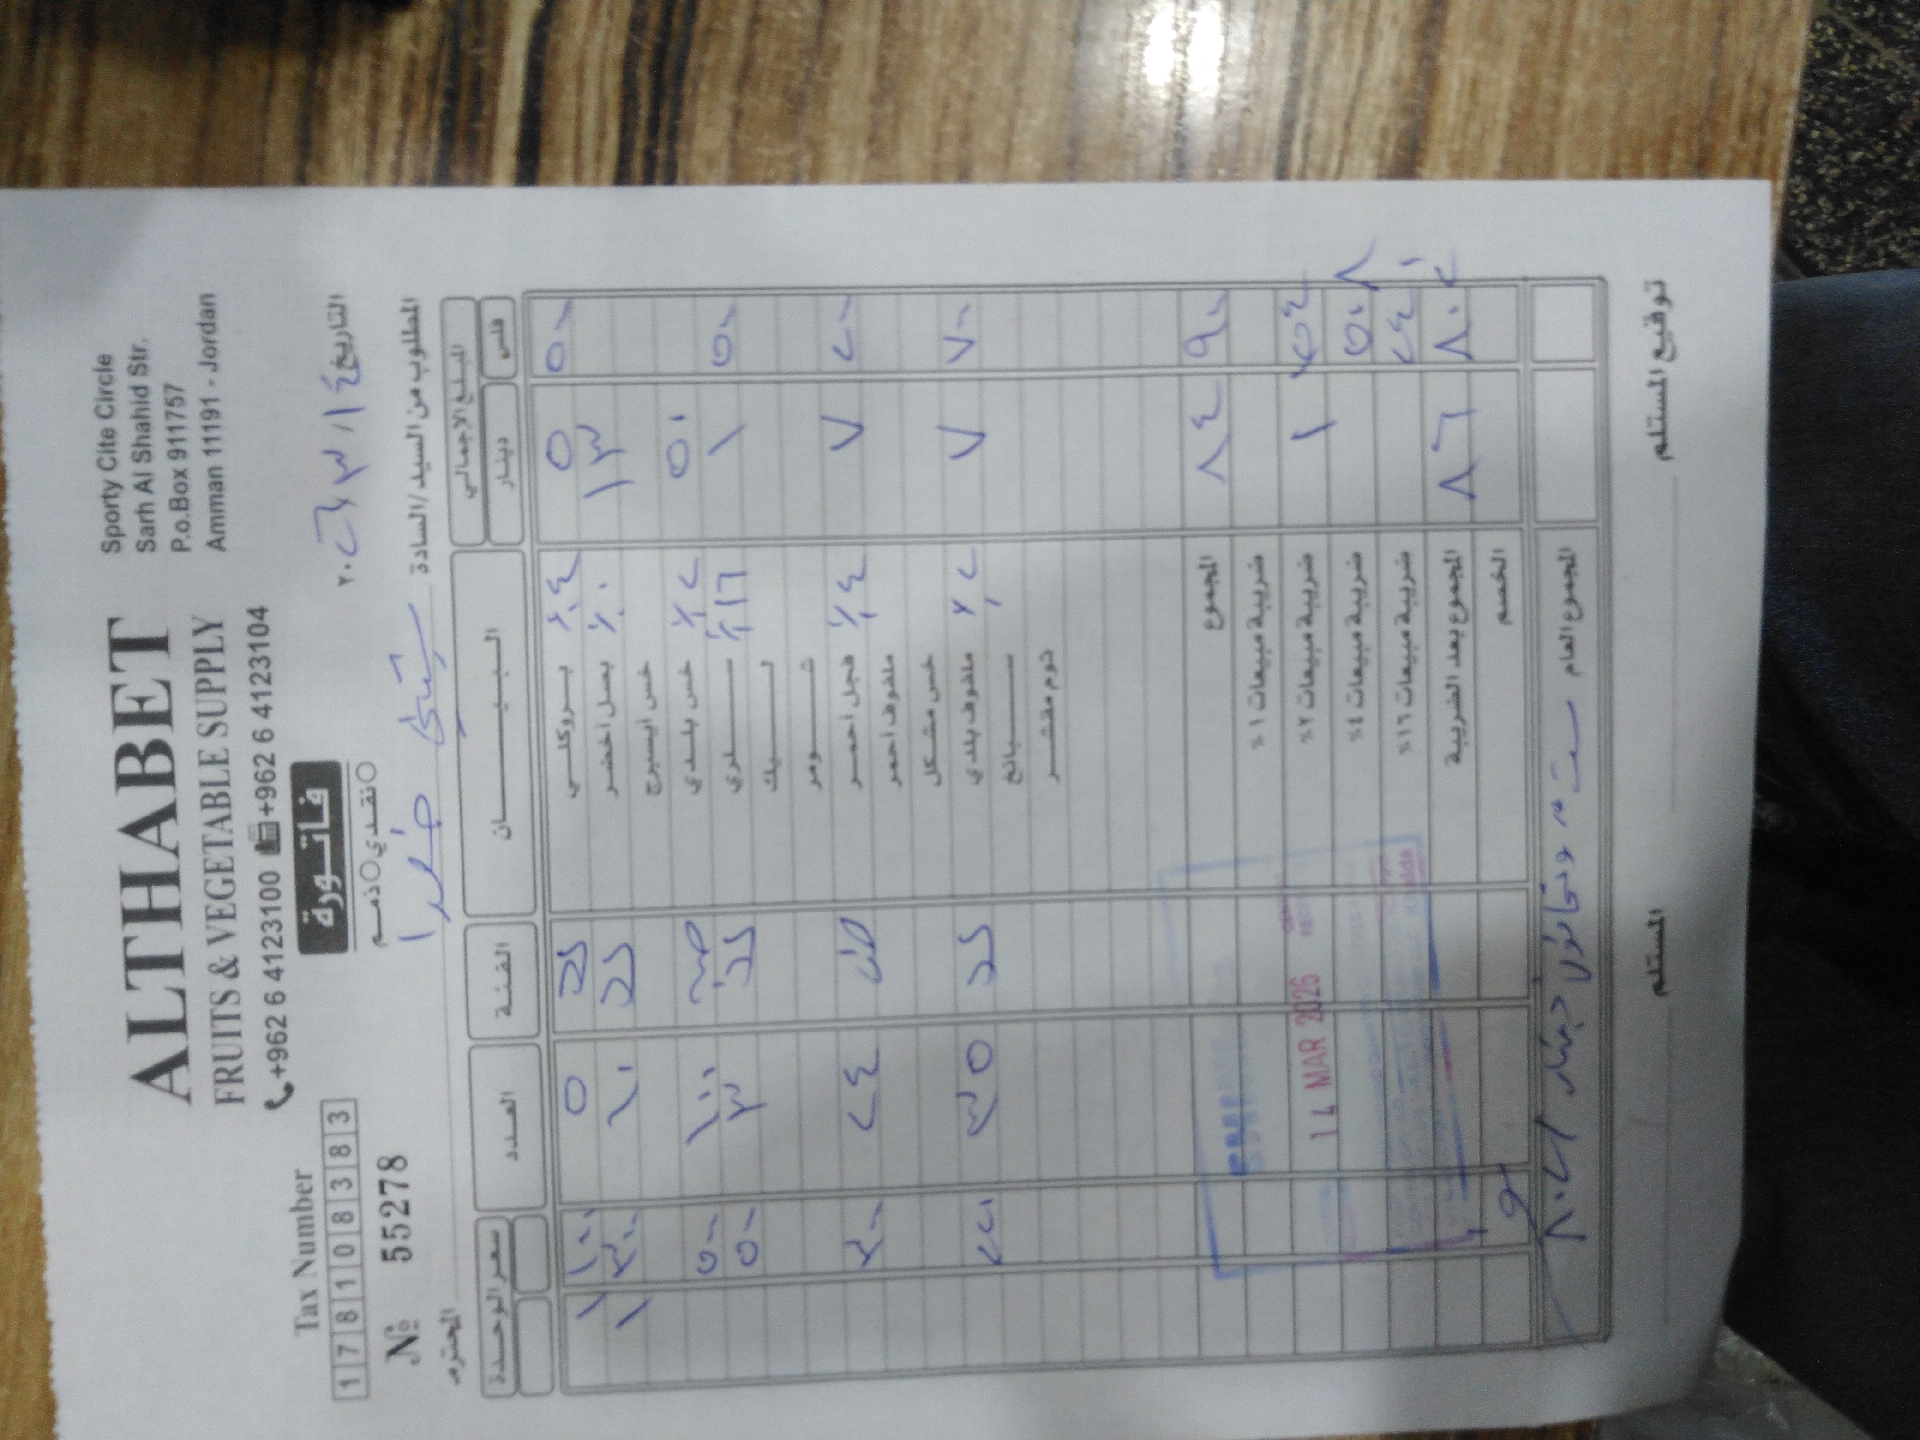 ALTHABET
FRUITS & VEGETABLE SUPPLY
+962 6 4123100 +962 6 4123104
Sporty Cite Circle
Sarh Al Shahid Str.
P.o.Box 911757
Amman 11191 - Jordan
Tax Number
1 7 8 1 0 8 3 8 3
№ 55278
فاتورة
نقدي ذمم
التاريخ ١٤ / ٣ / ٢٠٢٦
المطلوب من السيد/السادة
المحترم
المبلغ الاجمالي البيــــان الفئة العدد سعر الوحدة
فلس دينار
٥٠٠ ٥ ٪٤ بروكلي ٥ ١٠٠ ١
١٣ ٪٠ بصل اخضر ١٠ ٣٠٠ ١
خس ايسبرج
٥٠ ٪٢ خس بلدي ١٠٠ ٥٠٠
٥٠٠ ١ ٪١٦ سلري ٣ ٥٠٠
ليك
شومر
٢٠٠ ٧ ٪٤ فجل احمر ٢٤ ٣٠٠
ملفوف احمر
خس مشكل
٧٠٠ ٧ ٪٢ ملفوف بلدي ٣٥ ٢٢٠
سبانخ
ثوم مقشر
٩٠٠ ٨٤ المجموع
ضريبة مبيعات ١ %
١٥٤ ١ ضريبة مبيعات ٢ %
٥٠٨ ضريبة مبيعات ٤ %
٢٤٠ ضريبة مبيعات ١٦ %
٨٠٢ ٨٦ المجموع بعد الضريبة
الخصم
المجموع العام ستة وثمانون دينار / ٨٠٢
14 MAR 2026
توقيع المستلم
المستلم